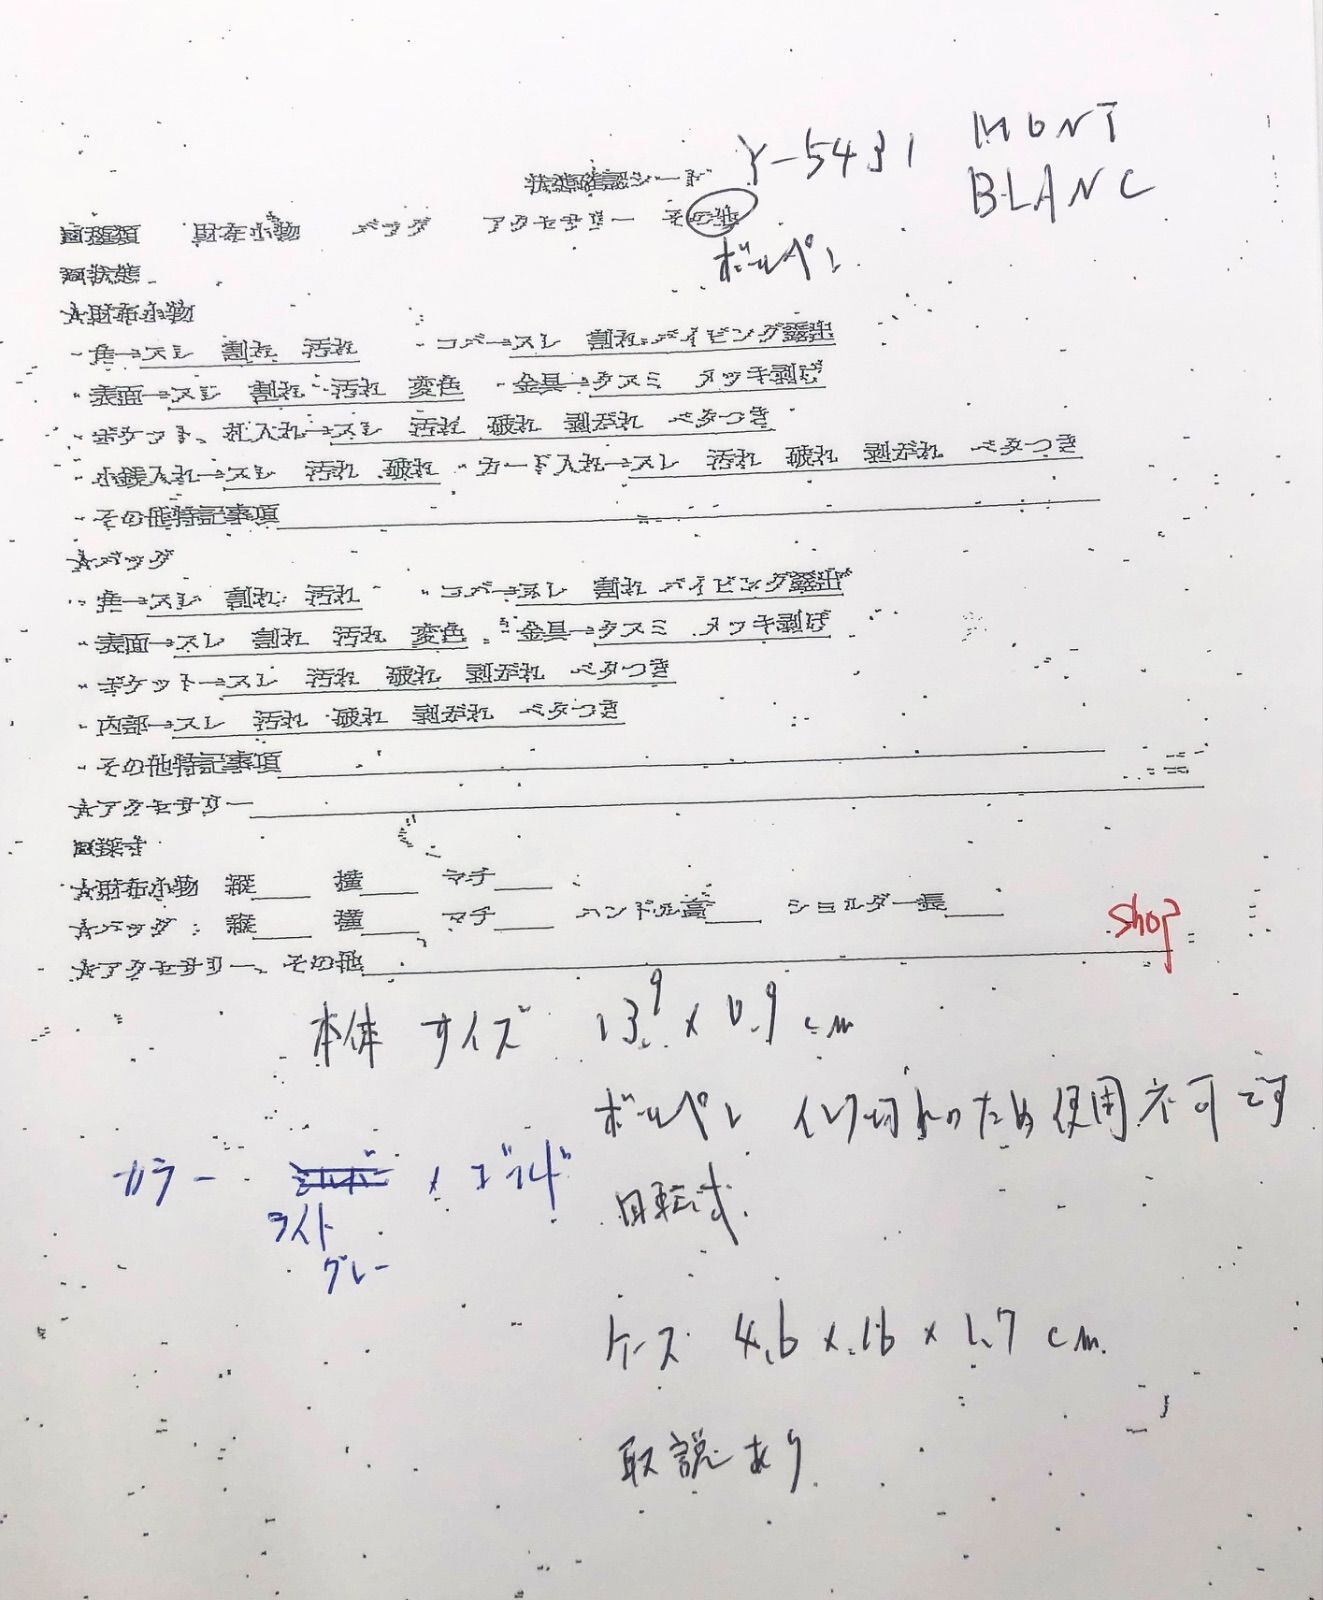 Y-5431 MONT
BLANC
状態確認シート
■種類 財布小物 バッグ アクセサリー その他
ボールペン
■状態
☆財布小物
・角→スレ 割れ 汚れ ・コバ→スレ 割れ パイピング露出
・表面→スレ 割れ 汚れ 変色 ・金具→クスミ メッキ剥げ
・ポケット、札入れ→スレ 汚れ 破れ 剥がれ ベタつき
・小銭入れ→スレ 汚れ 破れ ・カード入れ→スレ 汚れ 破れ 剥がれ ベタつき
・その他特記事項
☆バッグ
・角→スレ 割れ 汚れ ・コバ→スレ 割れ パイピング露出
・表面→スレ 割れ 汚れ 変色 ・金具→クスミ メッキ剥げ
・ポケット→スレ 汚れ 破れ 剥がれ ベタつき
・内部→スレ 汚れ 破れ 剥がれ ベタつき
・その他特記事項
☆アクセサリー
■採寸
☆財布小物 縦 横 マチ
☆バッグ: 縦 横 マチ ハンドル高 ショルダー長
☆アクセサリー、その他
shop
本体 サイズ 13.9 x 0.9 cm
ボールペン インク切れのため使用不可です
カラー シルバー x ゴールド
ライト
グレー
回転式
ケース 4.6 x 16 x 1.7 cm
取説あり